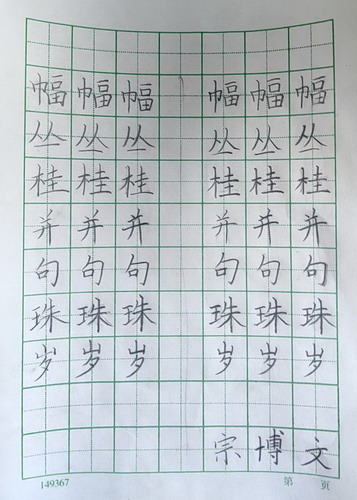 幅幅幅 幅幅幅
丛丛丛 丛丛丛
桂桂桂 桂桂桂
并并并 并并并
句句句 句句句
珠珠珠 珠珠珠
岁岁岁 岁岁岁
宗博文
149367 第 页